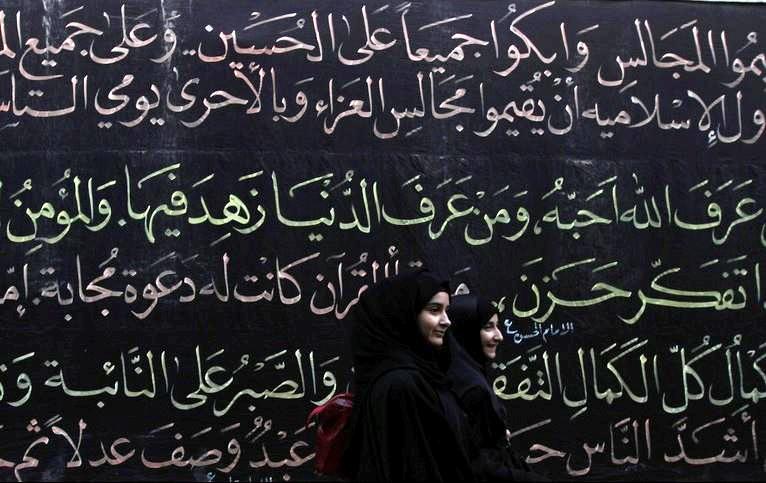 يمُوا المجالسَ وابكُوا جميعاً على الحُسين.. وعلى جميع الم
ول الإسلاميه أن يُقيموا مجالس العزاء وبالأحرى يومي التاس
عَرَفَ الله احَبَّهُ، وَمَن عَرَفَ الدُّنيا زهدَ فيها. وَالمؤمنُ
ا تفكّر حزنَ، القرآن كانت له دَعوة مُجابة. إم
الامام الحسن ع
كمالُ كلّ الكمالِ التفق والصّبرُ على النّائبة و
أشدَّ النّاس عبدٌ وَصَفَ عدلاً ثم